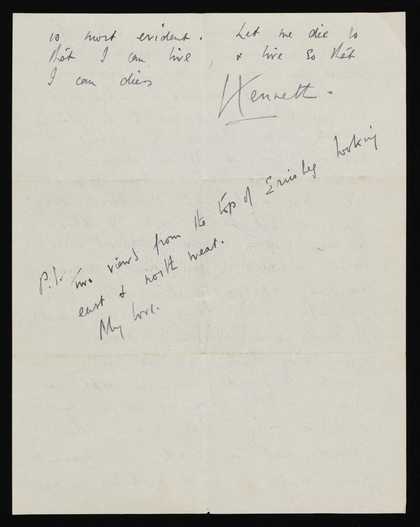 is most evident. Let me die so
that I can live, & live so that
I can die.
Kenneth.
P.S. Two views from the top of looking
east & north west.
My love.